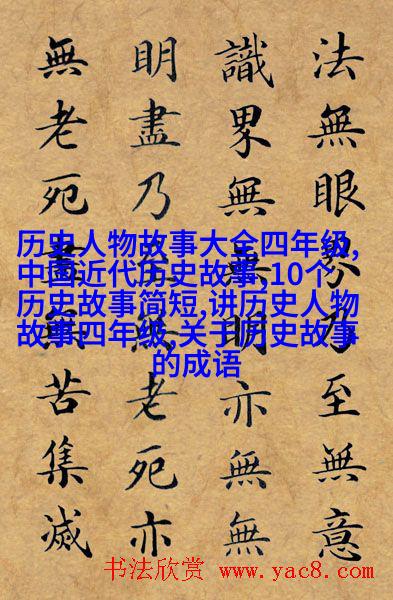 法無眼界乃至無意
識界無無明亦無無
明盡乃至無老死亦
無老死盡無苦集滅
历史人物故事大全四年级,
中国近代历史故事,10个
历史故事简短,讲历史人物
故事四年级,关于历史故事
的成语
书法欣赏 www.yac8.com